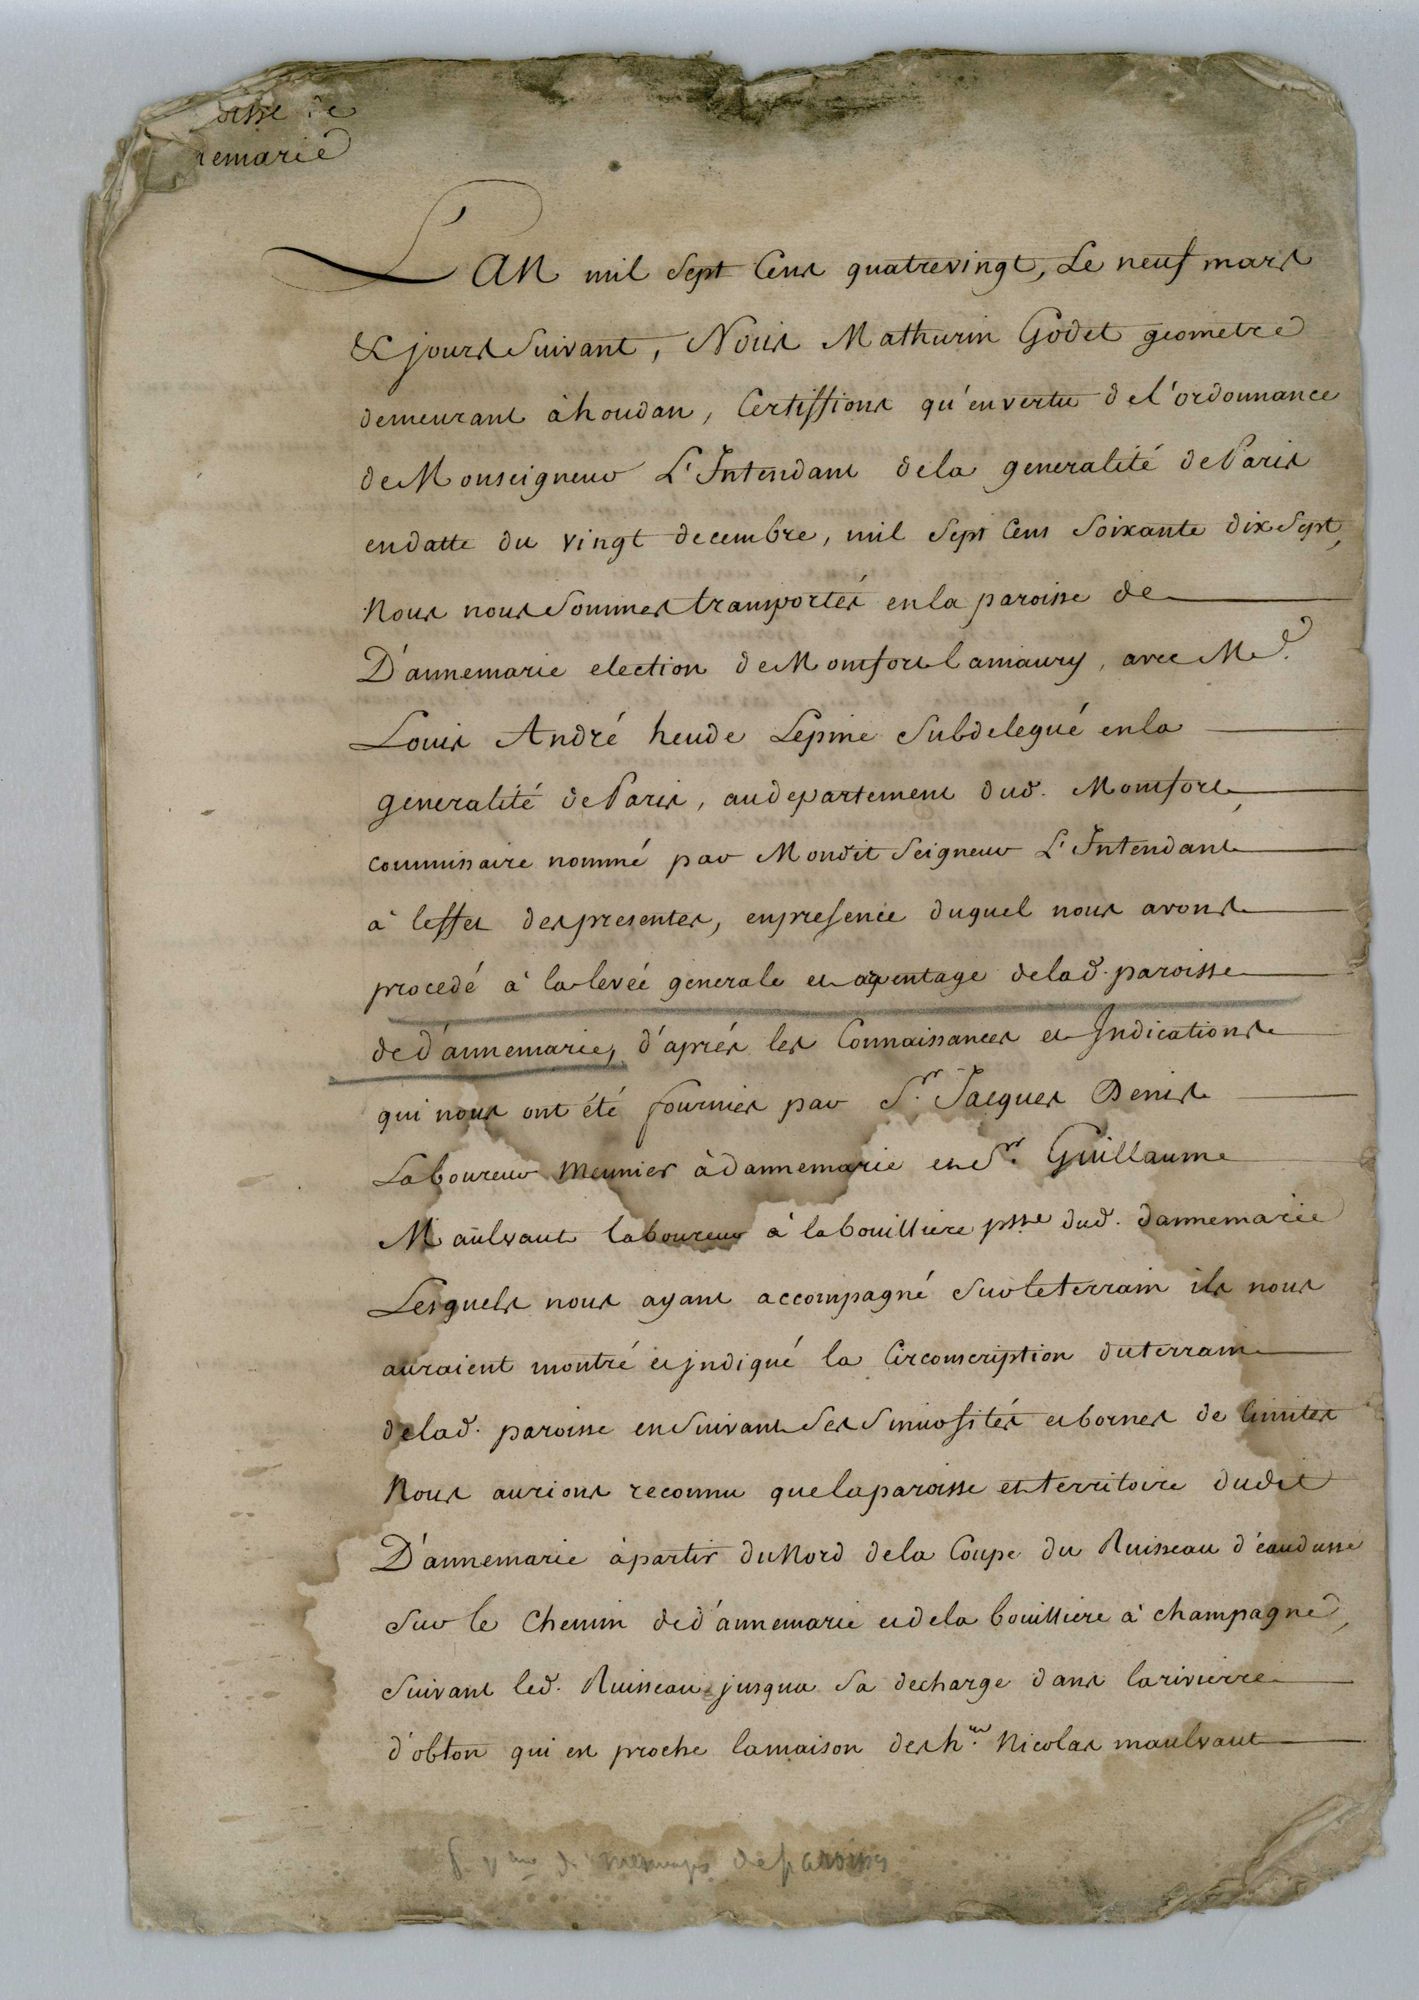 oisse de
nemarie
L'an mil sept Cens quatrevingt, Le neuf mars
& jours suivant, Nous Mathurin Godet geometre
demeurant à houdan, Certiffions qu'en vertu de l'ordonnance
de Monseigneur L'Intendant de la generalité de Paris
en datte du vingt decembre, mil Sept Cens Soixante dix Sept,
Nous nous Sommes transportés en la paroisse de
D'annemarie election de Montfort lamaury, avec Me.
Louis André heude Lepine Subdelegué en la
generalité de Paris, au departement dud. Montfort,
commissaire nommé par Mondit Seigneur L'Intendant
à leffet des presentes, en presence duquel nous avons
procedé à la levée generale et arpentage de lad. paroisse
de d'annemarie, d'aprés les Connaissances et Indications
qui nous ont été fournies par Sr. Jacques Denis
Laboureur Meunier à dannemarie et Sr. Guillaume
Maulvaut laboureur à la bouilliere psse dud. dannemarie
Lesquels nous ayant accompagné Sur le terrain ils nous
auraient montré et jndiqué la Circonscription du terrain
de lad. paroisse en Suivant Ses Sinuosités et bornes de limites
Nous aurions reconnu que la paroisse et territoire dudit
D'annemarie à partir du Nord de la Coupe du Ruisseau d'éaudusse
Sur le Chemin de d'annemarie et de la bouilliere à Champagne,
Suivant led. Ruisseau jusqua Sa decharge dans la rivierre
d'obton qui est proche la maison des hers. Nicolas maulvaut
de paroisses